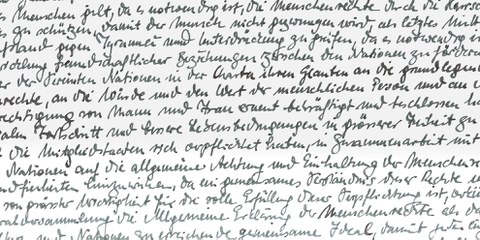 Menschen gilt, da es notwendig ist, die Menschenrechte durch die Herrsch
zu schützen, damit der Mensch nicht gezwungen wird, als letztes Mittel
stand gegen Tyrannei und Unterdrückung zu greifen, da es notwendig ist
freundschaftlicher Beziehungen zwischen den Nationen zu fördern
er der Vereinten Nationen in der Charta ihren Glauben an die grundlegend
rechte, an die Würde und den Wert der menschlichen Person und an die
rechtigung von Mann und Frau erneut bekräftigt und beschlossen ha
alen Fortschritt und bessere Lebensbedingungen in grösserer Freiheit zu
die Mitgliedstaaten sich verpflichtet haben, in Zusammenarbeit mit
Nationen auf die allgemeine Achtung und Einhaltung der Menschenre
undfreiheiten hinzuwirken, da ein gemeinsames Verständnis dieser Rechte u
von grösster Wichtigkeit für die volle Erfüllung dieser Verpflichtung ist, verkün
ralversammlung die Allgemeine Erklärung der Menschenrechte als da
und Nationen zu erreichende gemeinsame Ideal, damit jeder